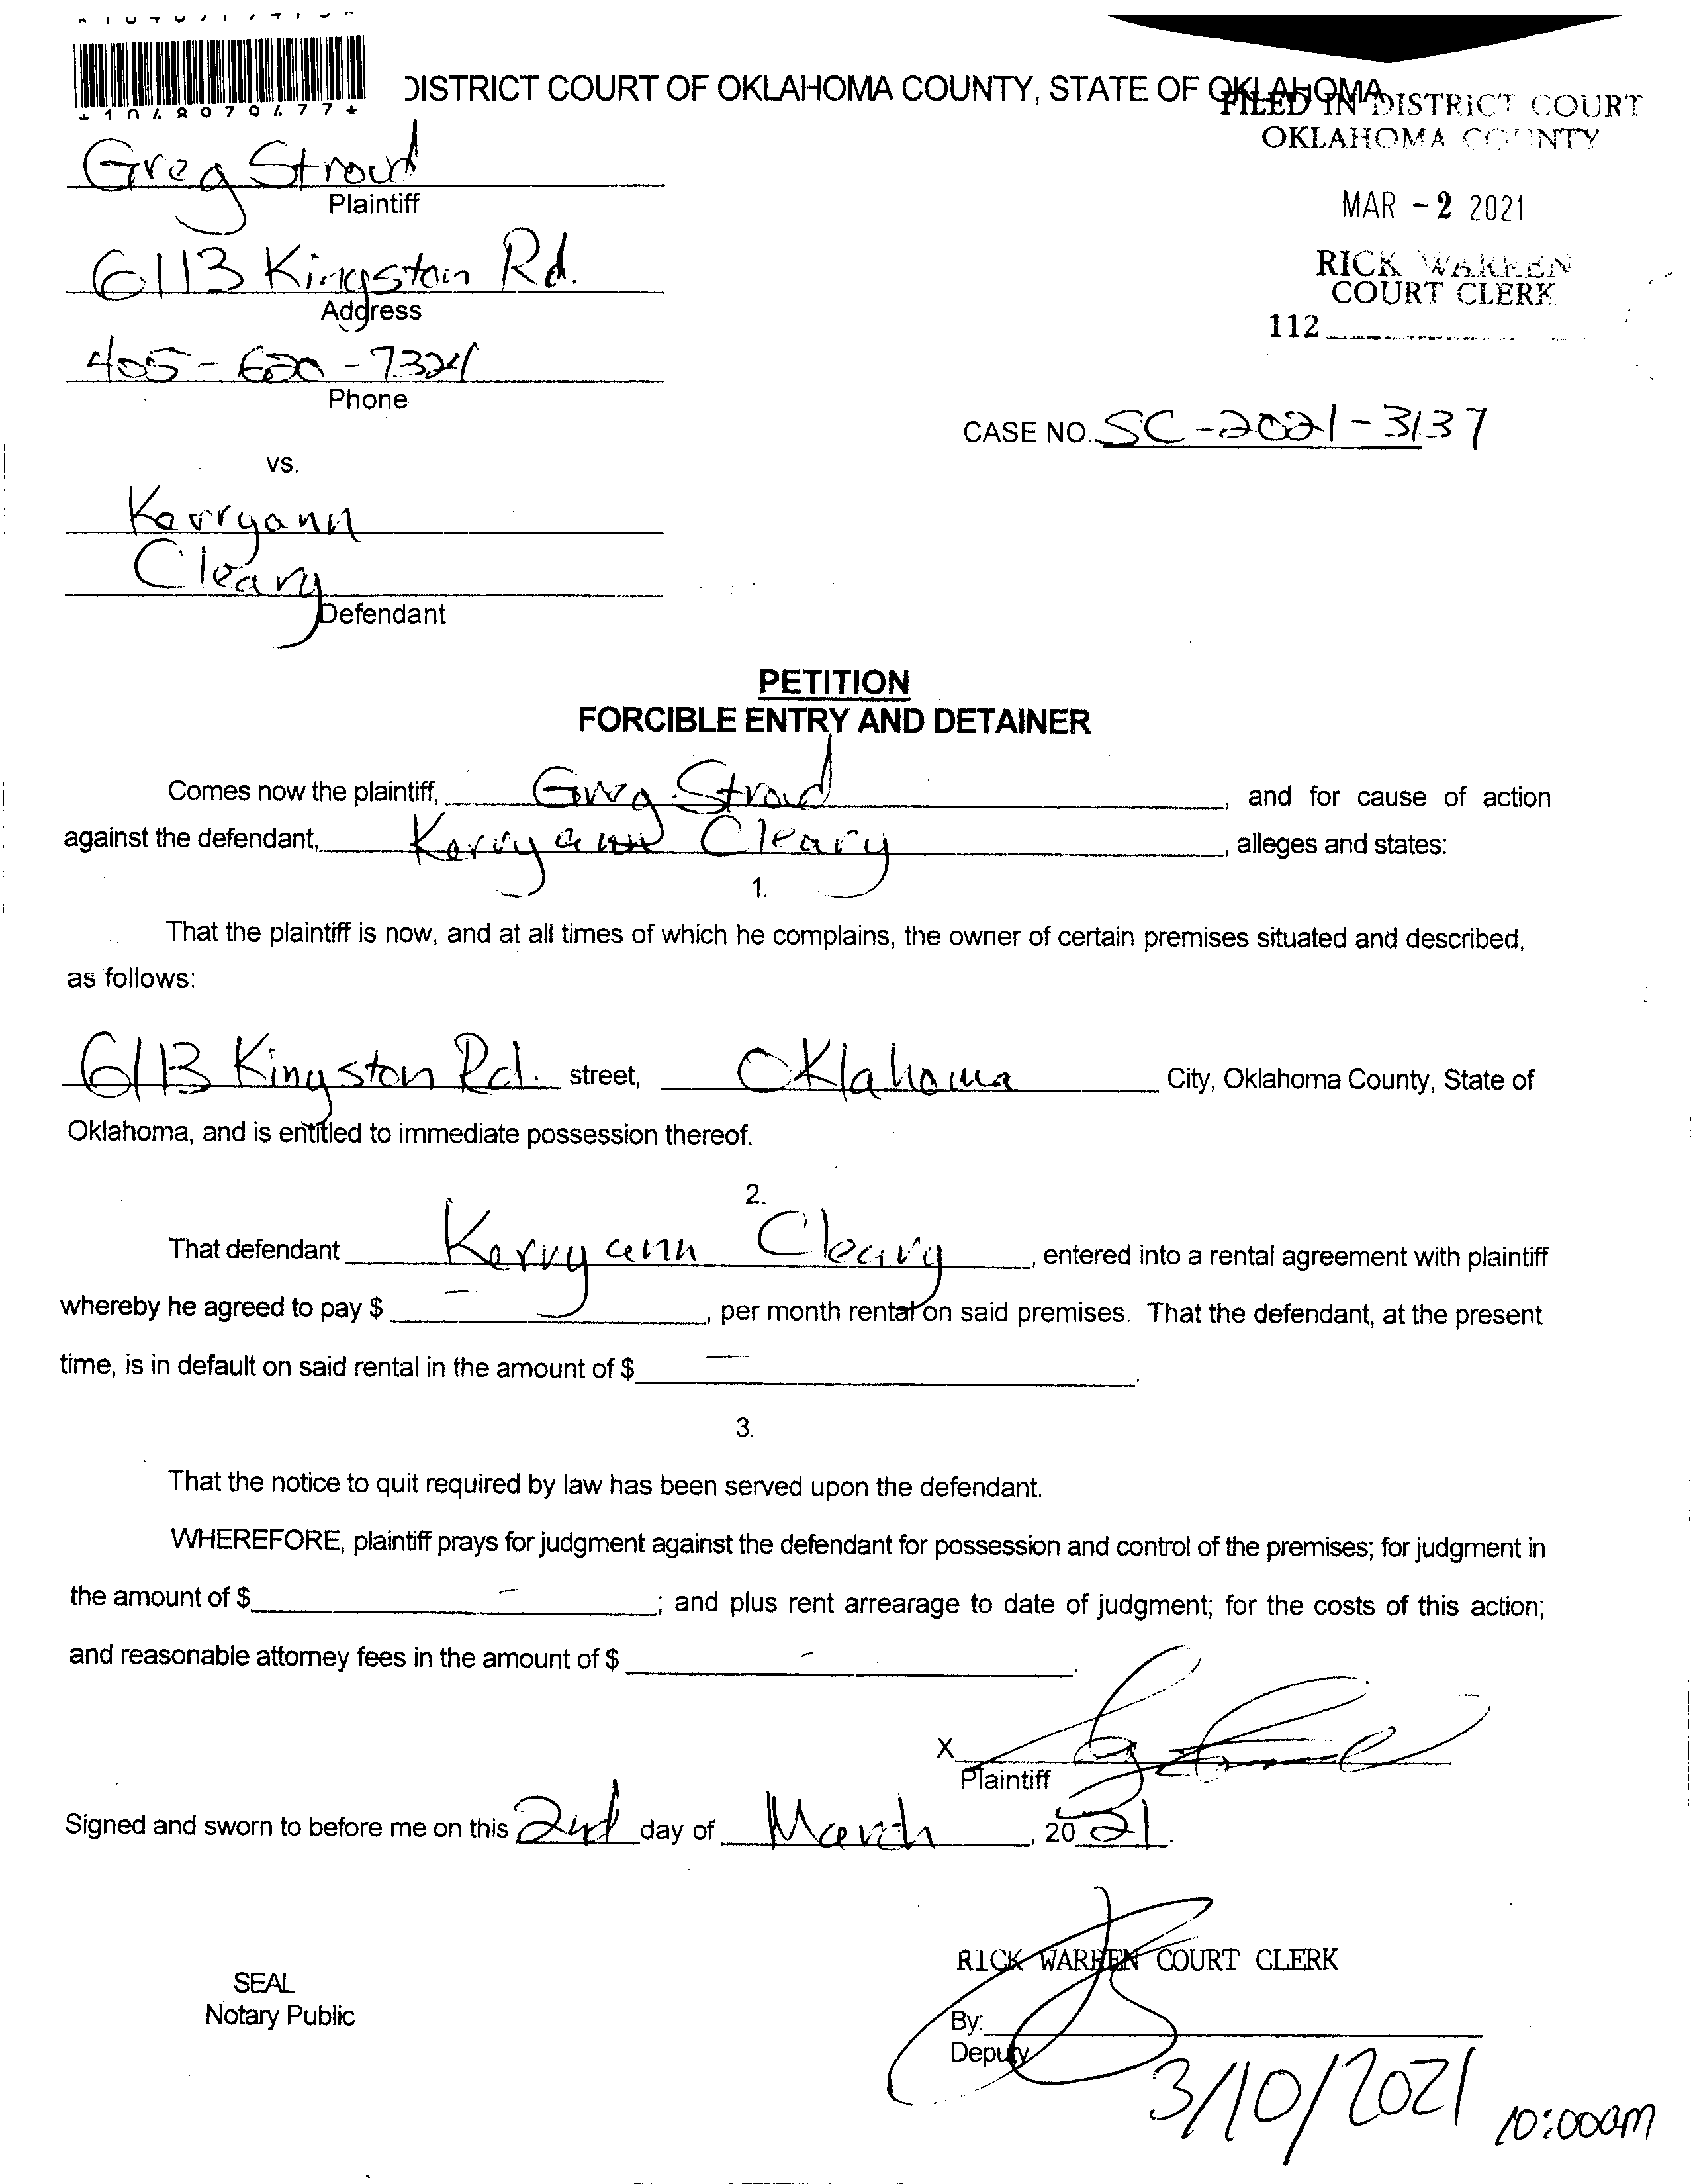 *1048979477*
DISTRICT COURT OF OKLAHOMA COUNTY, STATE OF OKLAHOMA
FILED IN DISTRICT COURT
OKLAHOMA COUNTY
MAR - 2 2021
RICK WARREN
COURT CLERK
112
Greg Stroud
Plaintiff
6113 Kingston Rd.
Address
405-620-7324
Phone
CASE NO. SC-2021-3137
vs.
Kerryann
Cleary
Defendant
PETITION
FORCIBLE ENTRY AND DETAINER
Comes now the plaintiff, Greg Stroud, and for cause of action
against the defendant, Kerryann Cleary, alleges and states:
1.
That the plaintiff is now, and at all times of which he complains, the owner of certain premises situated and described,
as follows:
6113 Kingston Rd. street, Oklahoma City, Oklahoma County, State of
Oklahoma, and is entitled to immediate possession thereof.
2.
That defendant Kerryann Cleary, entered into a rental agreement with plaintiff
whereby he agreed to pay $ -, per month rental on said premises. That the defendant, at the present
time, is in default on said rental in the amount of $ -.
3.
That the notice to quit required by law has been served upon the defendant.
WHEREFORE, plaintiff prays for judgment against the defendant for possession and control of the premises; for judgment in
the amount of $ -; and plus rent arrearage to date of judgment; for the costs of this action;
and reasonable attorney fees in the amount of $ -.
X
Plaintiff
Signed and sworn to before me on this 2nd day of March, 2021.
RICK WARREN COURT CLERK
SEAL
Notary Public
By:
Deputy
3/10/2021 10:00am